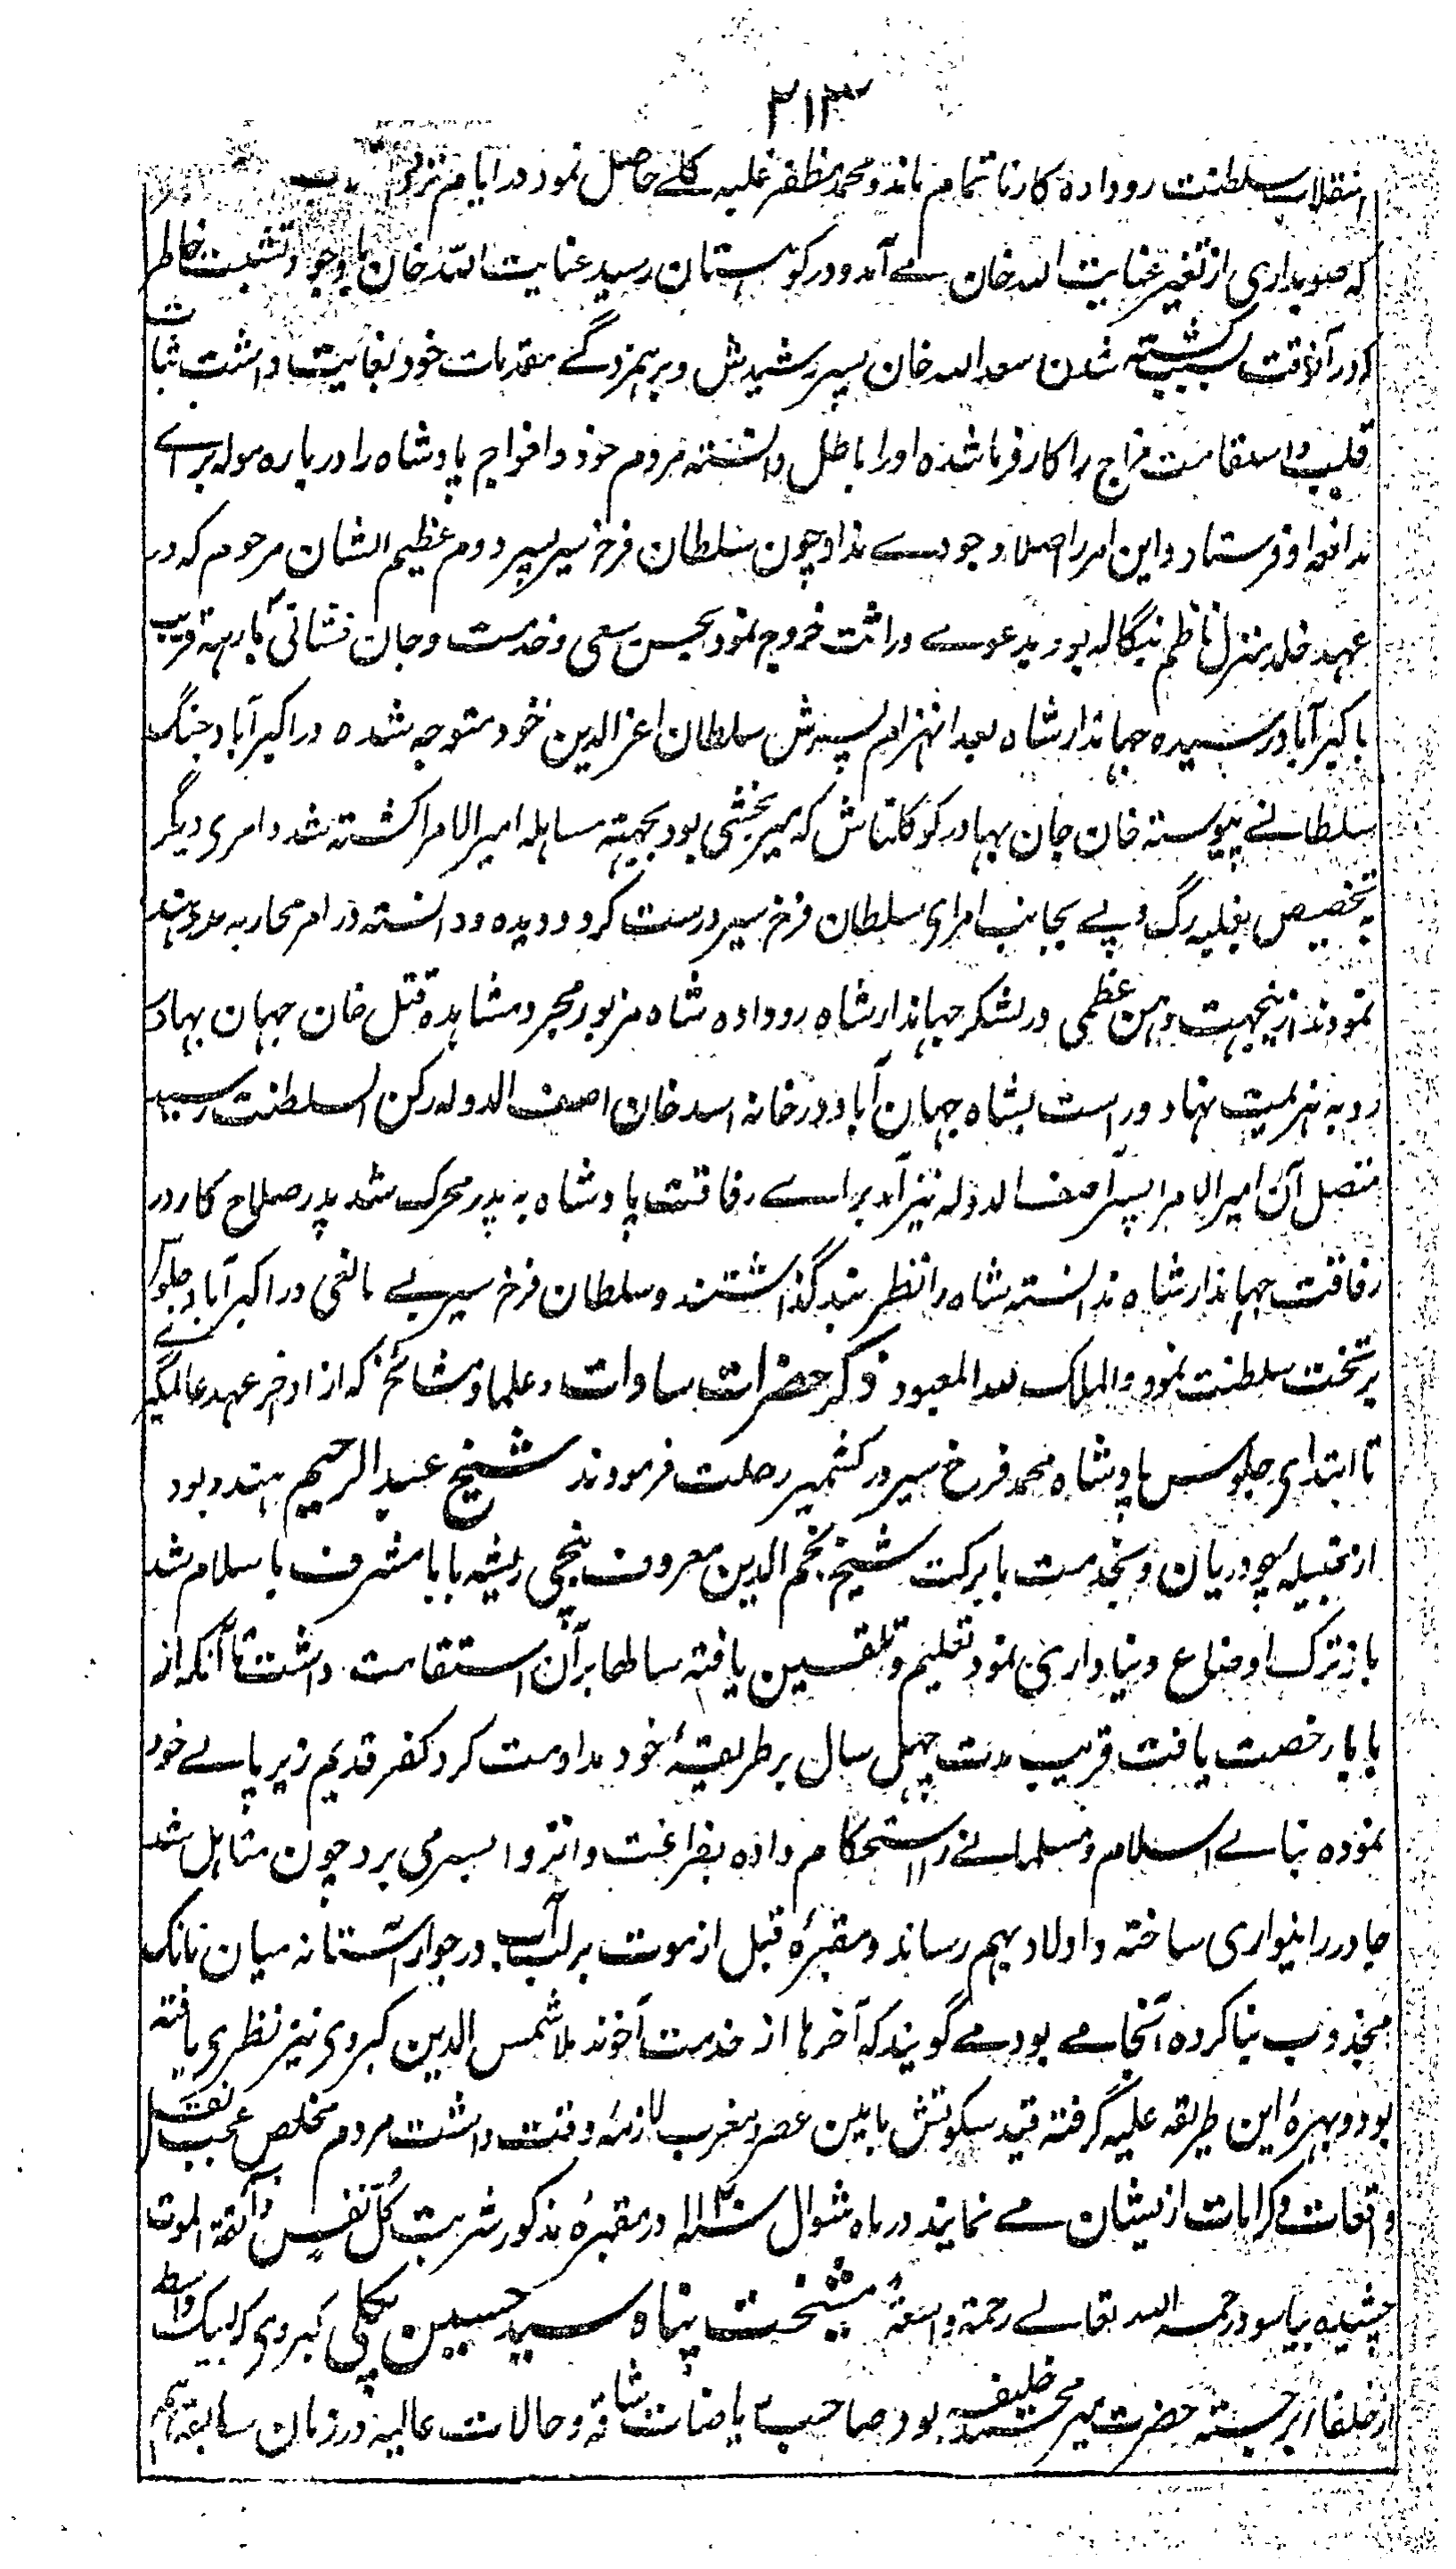 ۲۱۳
انقلاب سلطنت رو داده کار ناتمام ماند و محمد مظفر غلبه کلے حاصل نمود در ایام
که صوبداری از تغیر عنایت الله خان مے آمد و در کوهستان رسید عنایت الله خان با وجود تشتت خاطر
که در آنوقت بسبب کشته شدن سعد الله خان پسر رشیدش و برهمزدگے مقدمات خود بغایت داشت ثبات
قلب و استقامت مزاج را کار فرما شده او را باطل دانسته مردم خود و افواج پادشاه را در باره موله براے
مدافعه او فرستاد و این امر را اصلا وجودے نداد چون سلطان فرخ سیر پسر دوم عظیم الشان مرحوم که در
عهد خلد منزل ناظم بنگاله بود بدعوے وراثت خروج نمود بحسن سعی و خدمت و جان فشانی بارهه قریب
باکبرآباد رسیده جهاندار شاه بعد انهزام پسرش سلطان اعز الدین خود متوجه شده در اکبرآباد جنگ
سلطانے پیوسته خان جان بهادر کوکلتاش که میر بخشی بود بجهته مساهله امیر الامرا کشته شد و امرای دیگر
به تخصیص مغلیه رگ و پے بجانب امرای سلطان فرخ سیر درست کرد و دیده و دانسته در امر محاربه مداهنه
نمودند ازینجهت وهن عظمی در لشکر جهاندار شاه رو داده شاه مزبور مجرد مشاهده قتل خان جهان بهادر
رو به هزیمت نهاد و راست بشاه جهان آباد در خانه اسد خان اصف الدوله رکن السلطنت رسید
متصل آن امیر الامرا پسر آصف الدوله نیز آمد براے رفاقت پادشاه به پدر محرک شد پدر صلاح کار در
رفاقت جهاندار شاه ندانسته شاه را نظر بند گذاشتند و سلطان فرخ سیر بے مانعی در اکبرآباد جلوسے
بر تخت سلطنت نمود والملک لله المعبود ذکر حضرات سادات و علما و مشائخ که از اواخر عهد عالمگیر
تا ابتدای جلوس پادشاه محمد فرخ سیر در کشمیر رحلت فرمودند شیخ عبد الرحیم هندو بود
از قبیله چودریان و بخدمت با برکت شیخ نجم الدین معروف بنجی ریشه بابا مشرف باسلام شد
باز ترک اوضاع دنیا داری نمود تعلیم و تلقین یافته سالها بر آن استقامت داشت تا آنکه از
بابا رخصت یافت قریب مدت چهل سال بر طریقهٔ خود مداومت کرد کفر قدیم زیر پاے خود
نموده بناے اسلام و مسلمانے را استحکام داده بفراغت و انزوا بسر می برد چون متاهل شد
جا در رانیواری ساخته و اولاد بهم رساند و مقبرهٔ قبل از موت بر لب آب در جوار آستانه میان نانک
مجذوب بنا کرده آنجا مے بود مے گویند که آخرها از خدمت آخوند ملا شمس الدین کبروی نیز نظری یافته
بود و بهرهٔ این طریقه علیه گرفته قید سکوتش بابین عصر و مغرب لازمهٔ وقت داشت مردم مخلص عجب نقل
واقعات و کرامات ازیشان مے نمایند در ماه شوال در مقبرهٔ مذکور شربت کُلُّ نَفْسٍ ذائقة الموت
چشیده بیاسود رحمه الله تعالے رحمة واسعة مشیخت پناه سید حسین پکلی کبروی که بیک واسطه
از خلفاء برجسته حضرت میر محمد خلیفه بود صاحب ریاضات شاقه و حالات عالیه در زمان سابقه هم